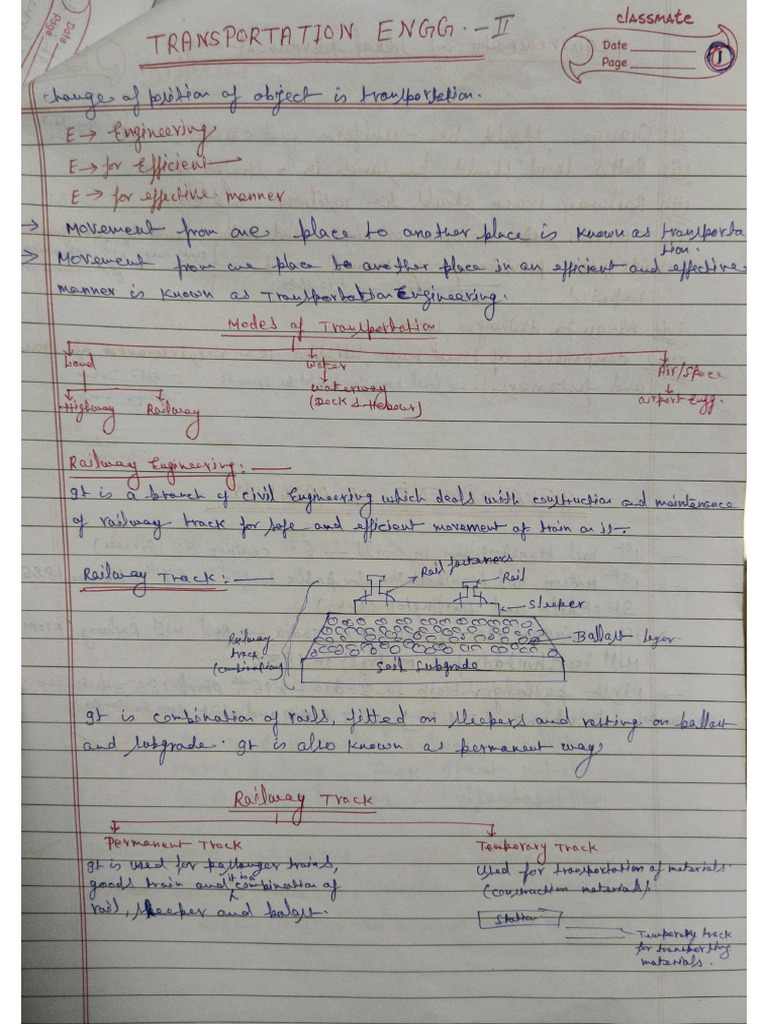 classmate
Date
Page
1
Date
Page
TRANSPORTATION ENGG.-II
Change of position of object is transportation.
E → Engineering
E → for Efficient
E → for effective manner
→ Movement from one place to another place is known as transporta
tion.
→ Movement from one place to another place in an efficient and effective
manner is known as Transportation Engineering.
Modes of Transportation
Land
water
Air/Space
Highway
Railway
waterway
(Dock & Harbour)
airport Engg.
Railway Engineering:—
It is a branch of civil Engineering which deals with construction and maintenance
of railway track for safe and efficient movement of train on it.
Railway Track:—
Rail fasteners
Rail
Sleeper
Railway
track
(combination)
Ballast layer
Soil Subgrade
It is combination of rails, fitted on sleepers and resting on ballast
and subgrade. It is also known as permanent way
Railway Track
Permanent Track
It is used for passanger trains,
goods train and it is a combination of
rail, sleeper and ballast.
Temporary Track
Used for transportation of materials.
(construction materials)
Station
Temporary track
for transporting
materials.